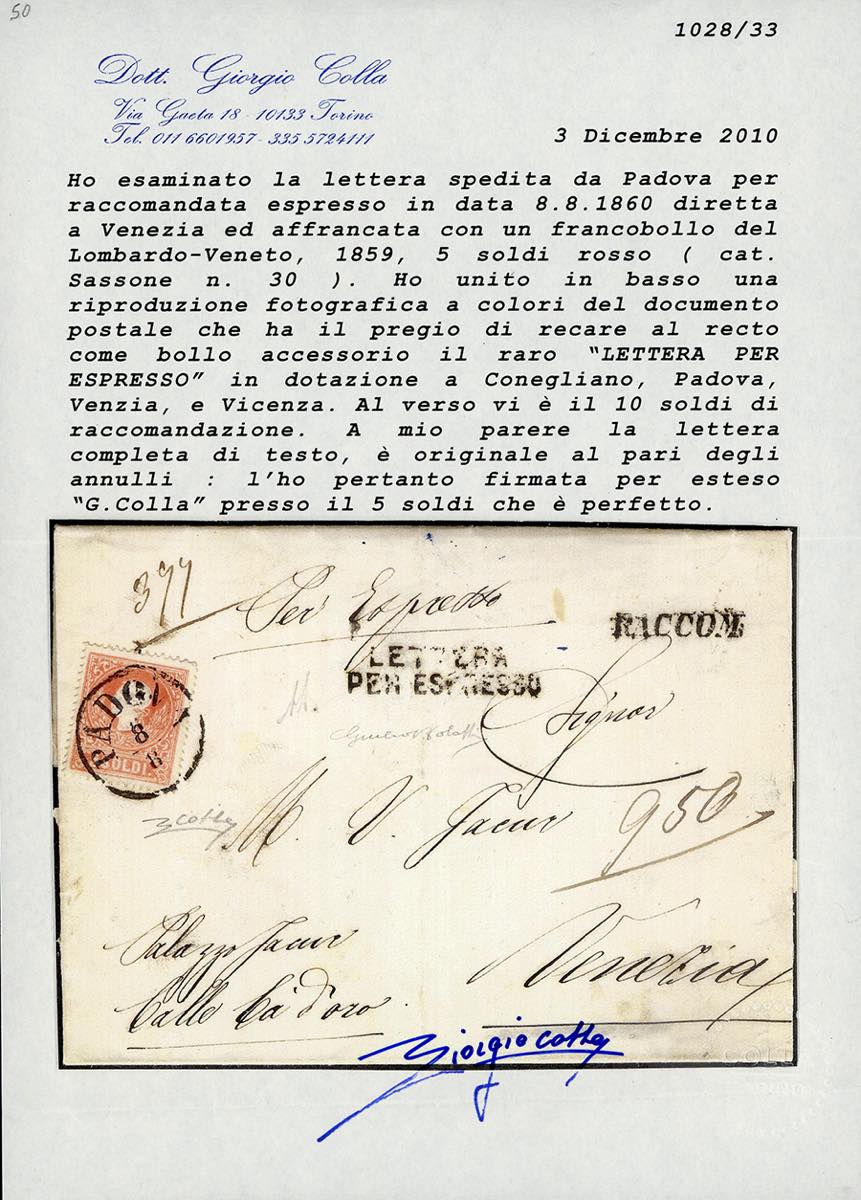 50
1028/33
Dott. Giorgio Colla
Via Gaeta 18 - 10133 Torino
Tel. 011 6601957 - 335 5724111
3 Dicembre 2010
Ho esaminato la lettera spedita da Padova per
raccomandata espresso in data 8.8.1860 diretta
a Venezia ed affrancata con un francobollo del
Lombardo-Veneto, 1859, 5 soldi rosso ( cat.
Sassone n. 30 ). Ho unito in basso una
riproduzione fotografica a colori del documento
postale che ha il pregio di recare al recto
come bollo accessorio il raro “LETTERA PER
ESPRESSO” in dotazione a Conegliano, Padova,
Venzia, e Vicenza. Al verso vi è il 10 soldi di
raccomandazione. A mio parere la lettera
completa di testo, è originale al pari degli
annulli : l’ho pertanto firmata per esteso
“G.Colla” presso il 5 soldi che è perfetto.
Per Espresso
RACCOM
LETTERA
PER ESPRESSO
PADOVA
8
8
SOLDI
Signor
M. V. Jacur
950
GColla
Palazzo Jacur
Venezia
Calle Ca d'oro
Giorgio Colla